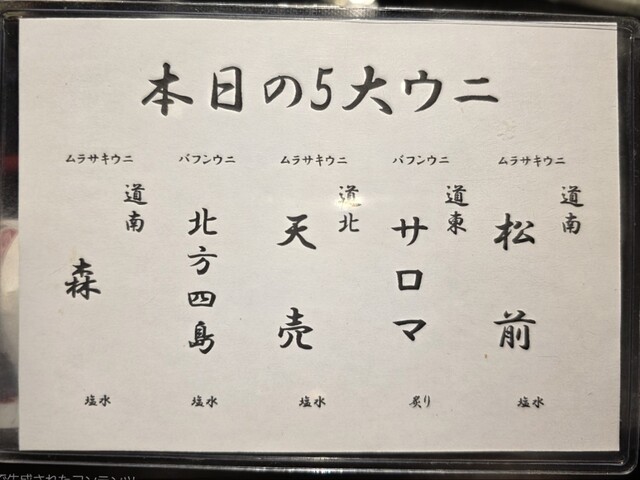 本日の5大ウニ
ムラサキウニ
道南
松前
塩水
バフンウニ
道東
サロマ
炙り
ムラサキウニ
道北
天売
塩水
バフンウニ
北方四島
塩水
ムラサキウニ
道南
森
塩水
で生成されたコンテンツ